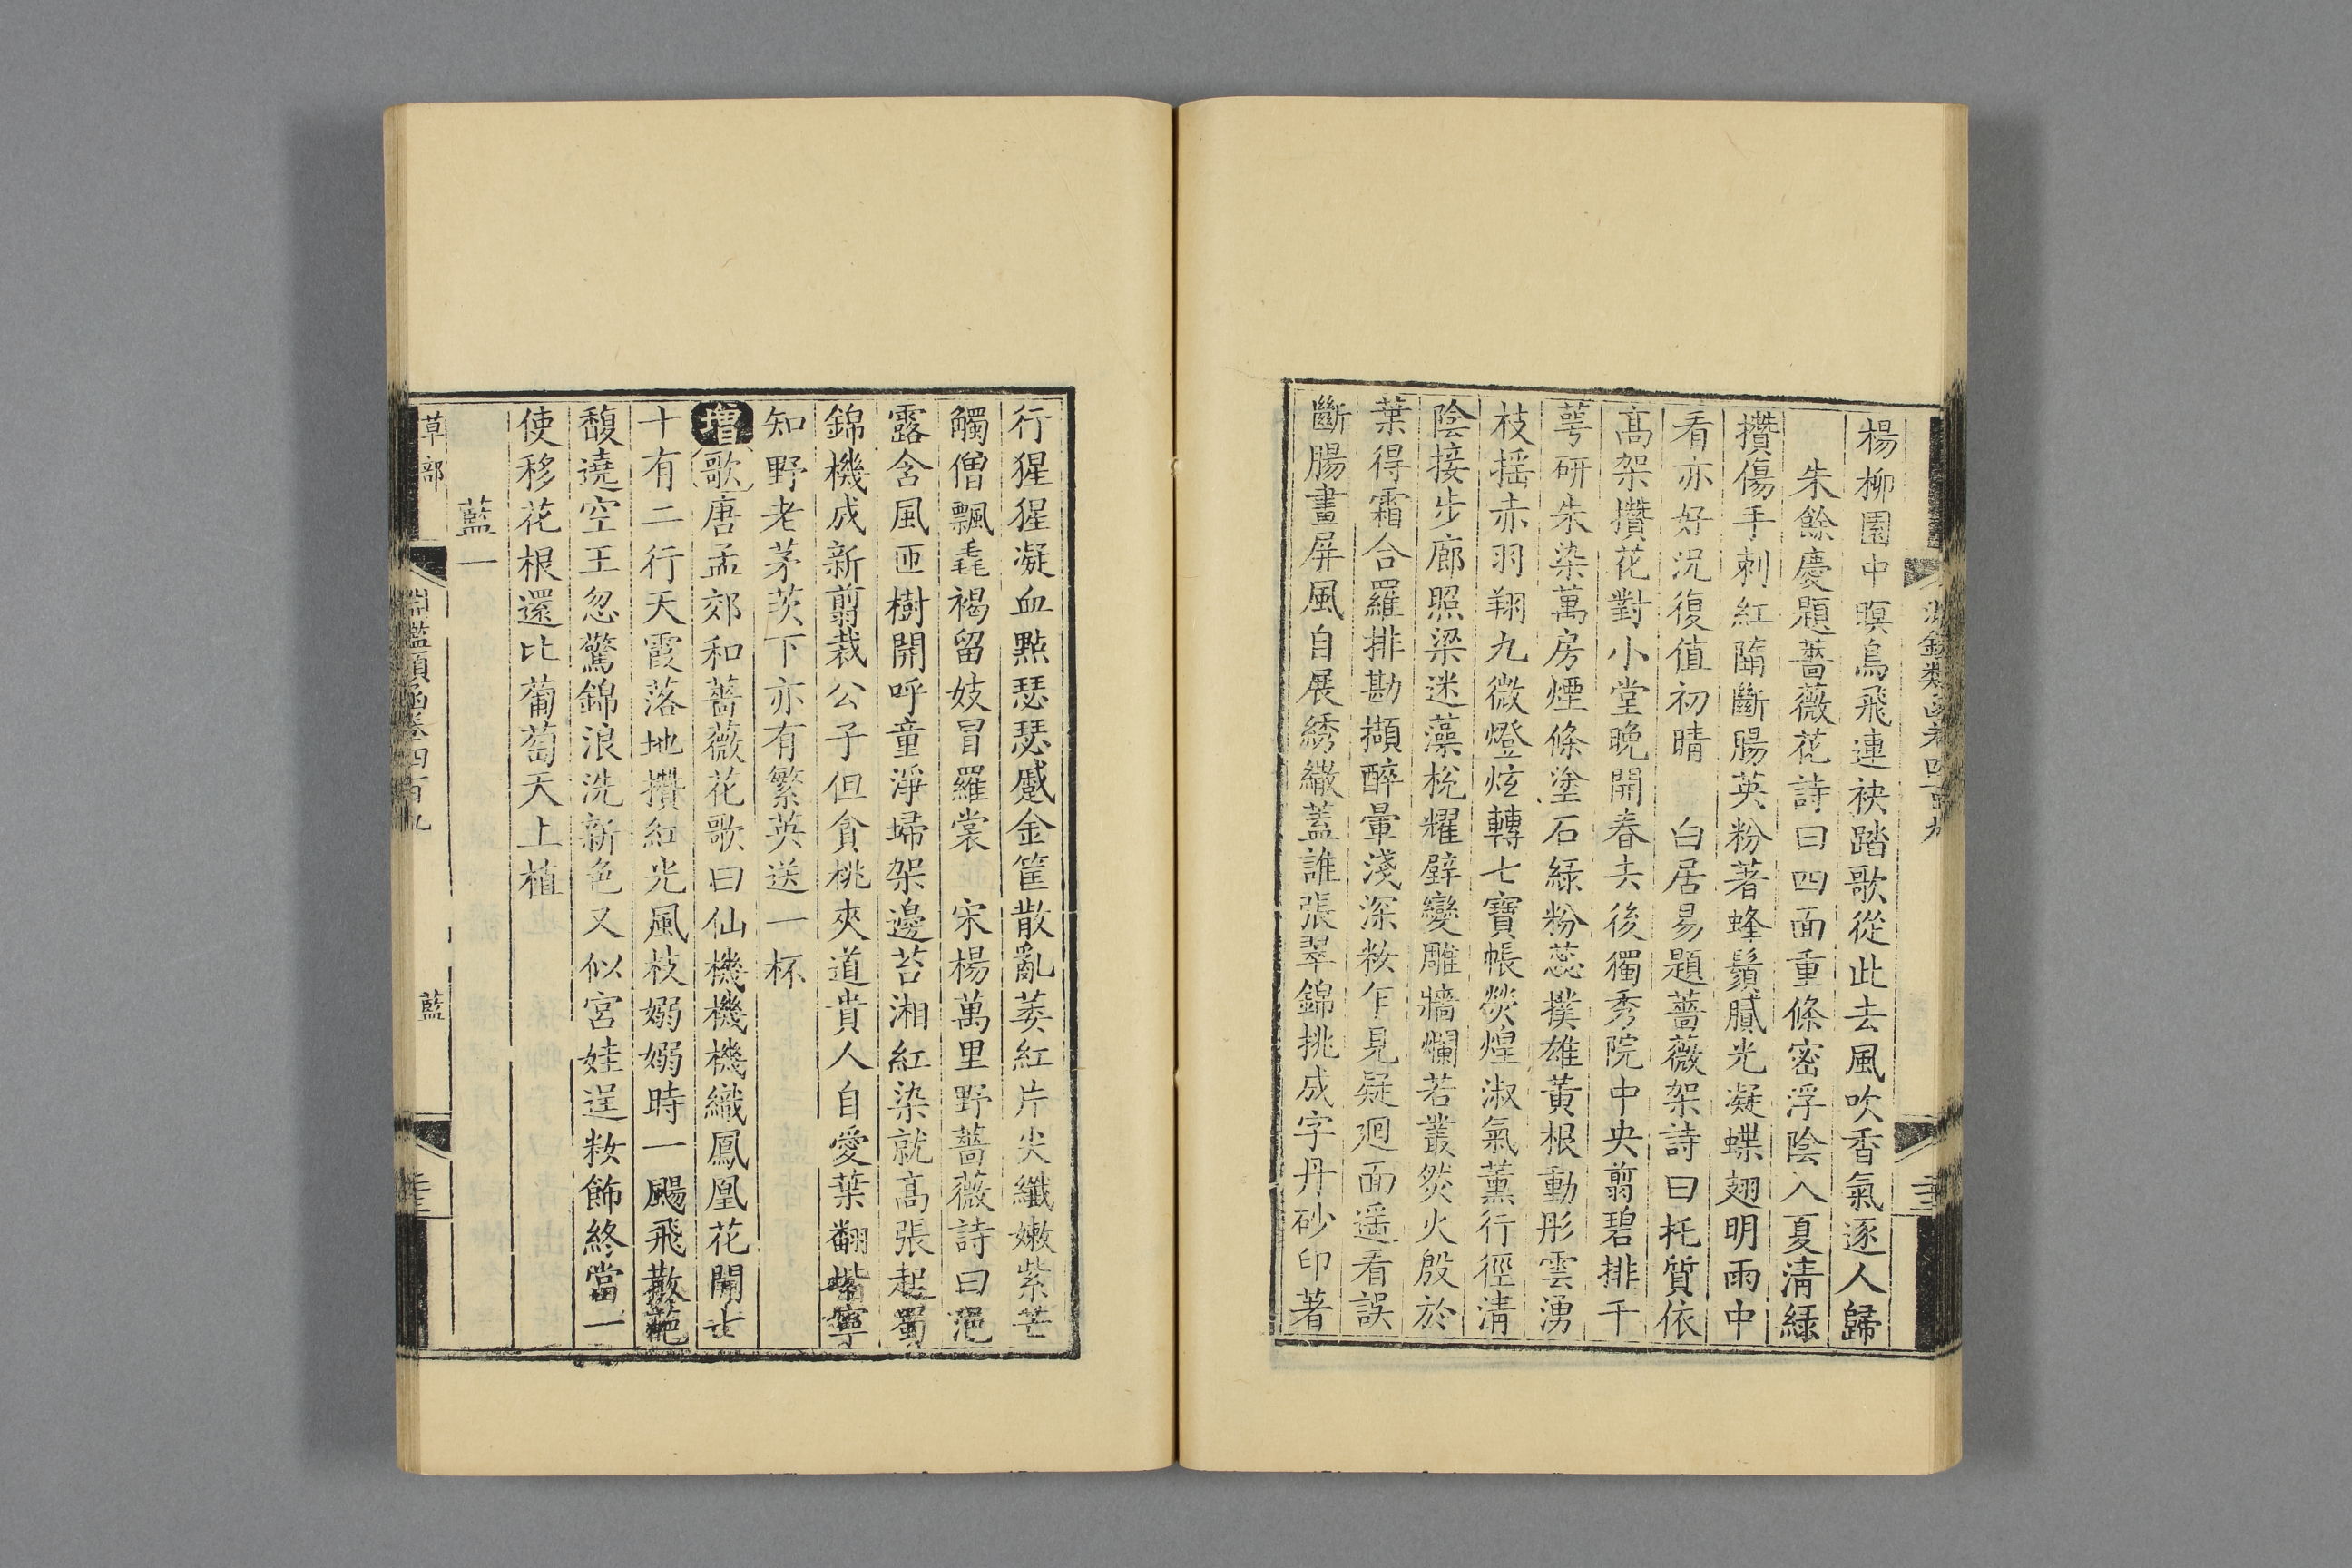 楊柳園中暝鳥飛連袂踏歌從此去風吹香氣逐人歸
朱餘慶題薔薇花詩曰四面重條密浮陰入夏清綠
攢傷手刺紅墮斷腸英粉著蜂鬚膩光凝蝶翅明雨中
看亦好況復值初晴　白居易題薔薇架詩曰托質依
高架攢花對小堂晚開春去後獨秀院中央翦碧排千
萼研朱染萬房煙條塗石綠粉蕊撲雄黃根動彤雲湧
枝搖赤羽翔九微燈炫轉七寶帳熒煌淑氣薰行徑清
陰接步廊照梁迷藻梲耀壁變雕牆爛若叢然火殷於
葉得霜合羅排勘纈醉暈淺深粧乍見疑迴面遥看誤
斷腸畫屏風自展綉繖蓋誰張翠錦挑成字丹砂印著
行猩猩凝血點瑟瑟蹙金筐散亂萎紅片尖纖嫩紫芒
觸僧飄毳褐留妓冒羅裳　宋楊萬里野薔薇詩曰浥
露含風匝樹開呼童淨埽架邊苔湘紅染就高張起蜀
錦機成新翦裁公子但貪桃夾道貴人自愛葉翻堦寧
知野老茅茨下亦有繁英送一杯
增歌唐孟郊和薔薇花歌曰仙機機機織鳳凰花開七
十有二行天霞落地攢紅光風枝嫋嫋時一颺飛散葩
馥遶空王忽驚錦浪洗新色又似宮娃逞粧飾終當一
使移花根還比葡萄天上植
藍一
草部
淵鑑類函卷四百九
藍